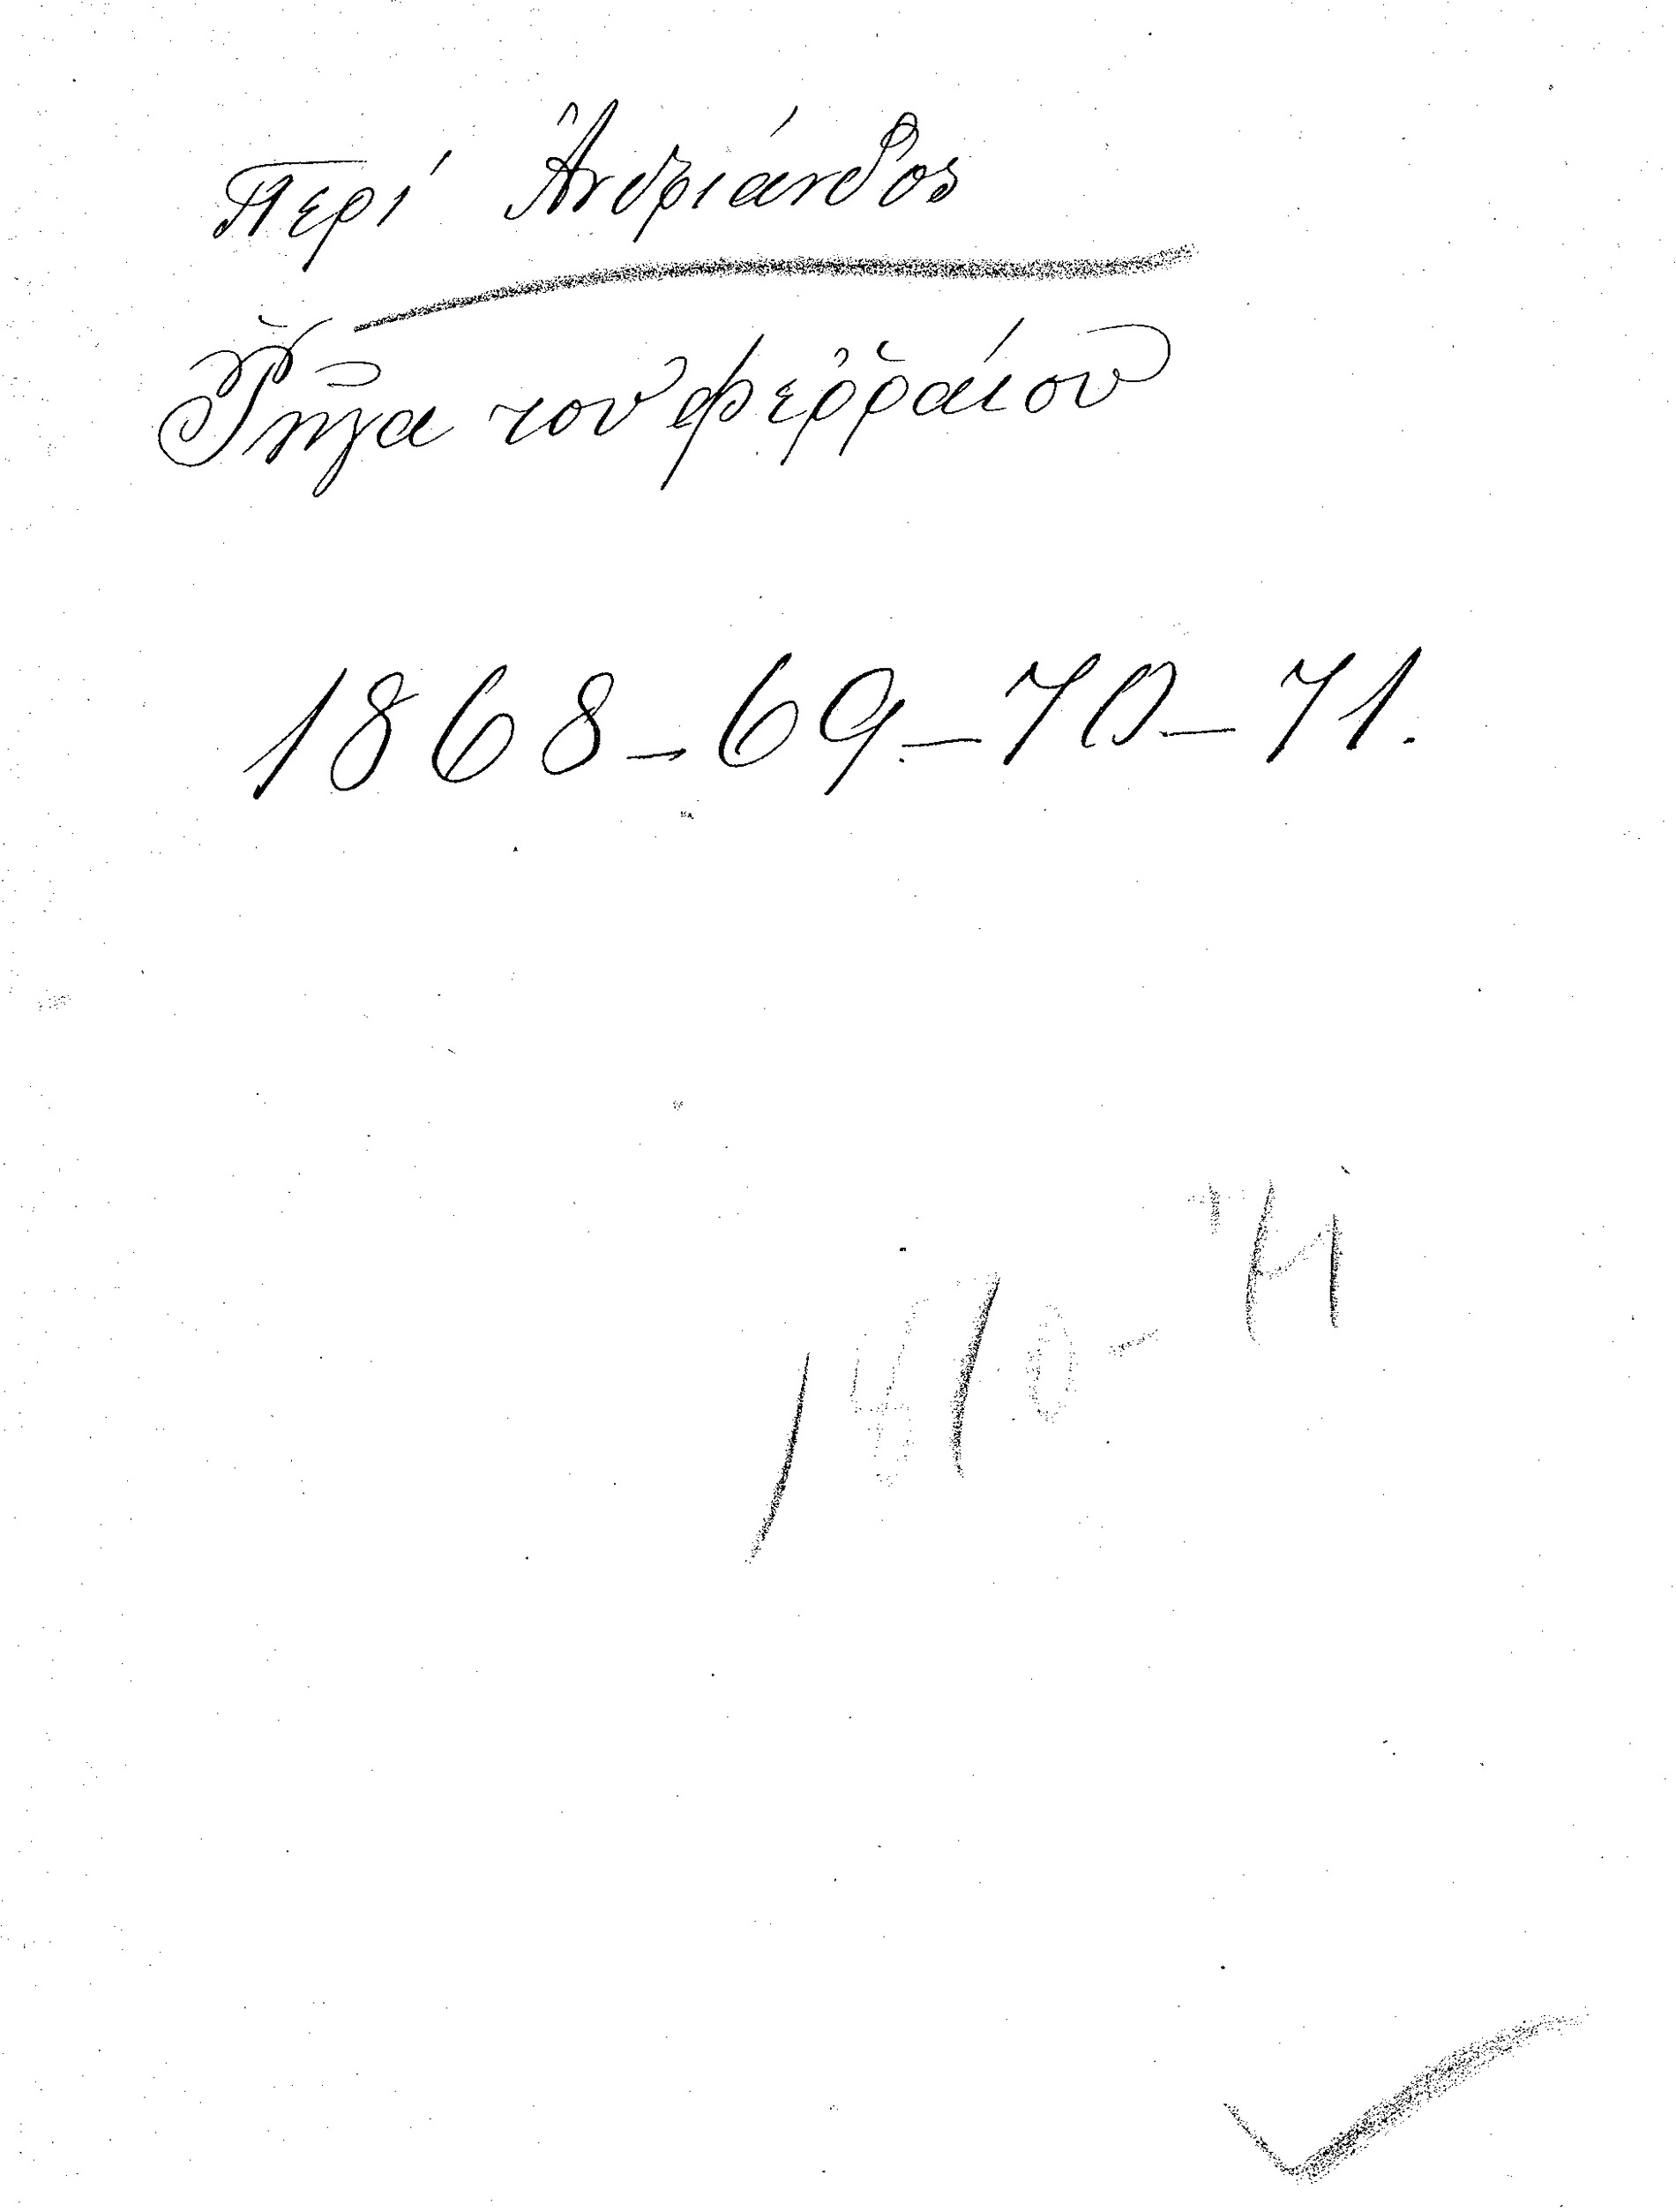 Περί Ἀνδριάνδος
Ῥήγα του Φεῤῥαίου
1868-69-70-71.
1870-71